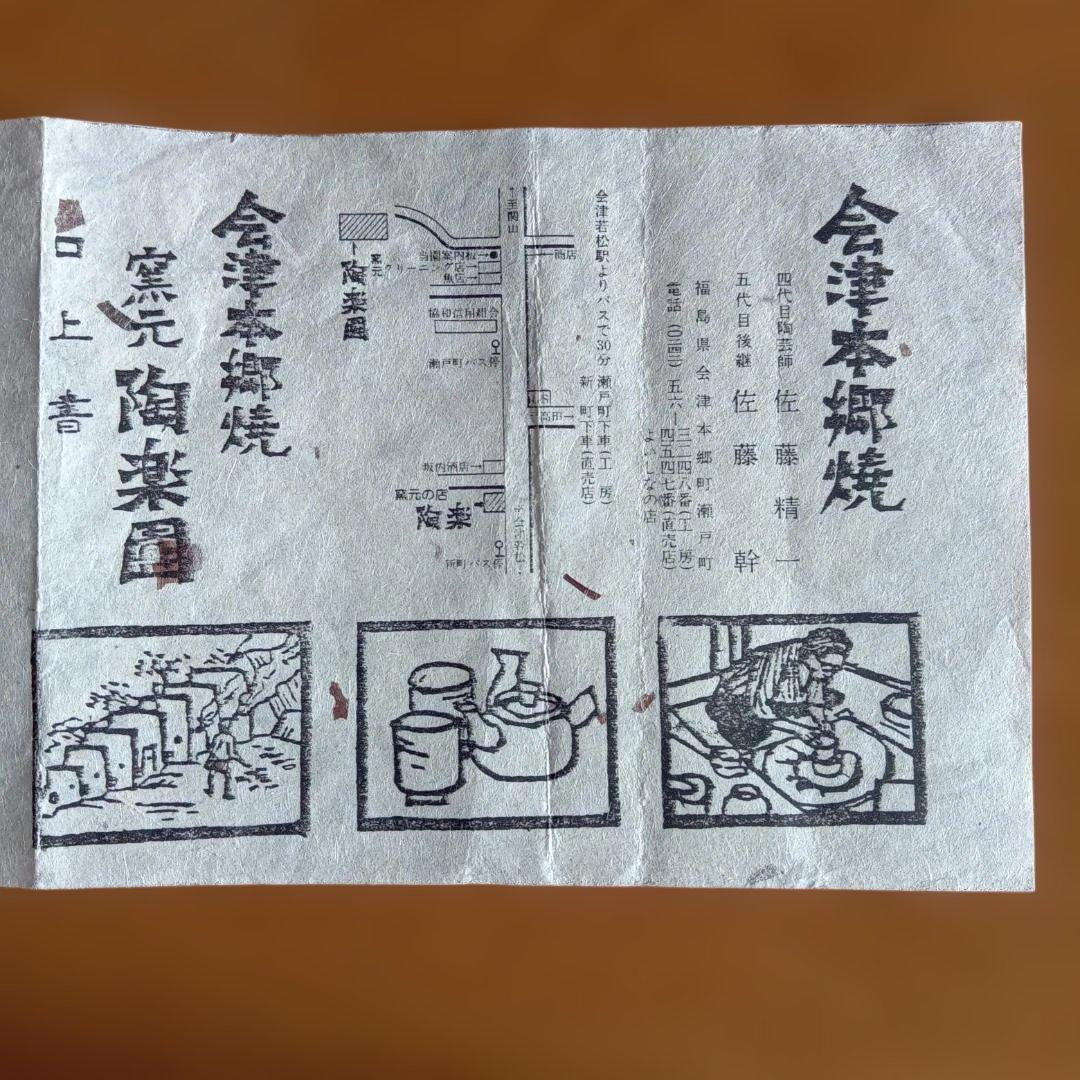 会津本郷焼
四代目陶芸師 佐藤精一
五代目後継 佐藤幹
福島県会津本郷町瀬戸町
電話(〇二四二)五六―三二四八番(工房)
四五四七番(直売店)
会津若松駅よりバスで30分 瀬戸町下車(工房)
新町下車(直売店)
至関山
商店
当園案内板
クリーニング店
魚店
窯元
陶楽園
協和信用組合
瀬戸町バス停
至高田
坂内酒店
窯元の店
陶楽
新町バス停
至会津若松
会津本郷焼
窯元 陶楽園
口上書